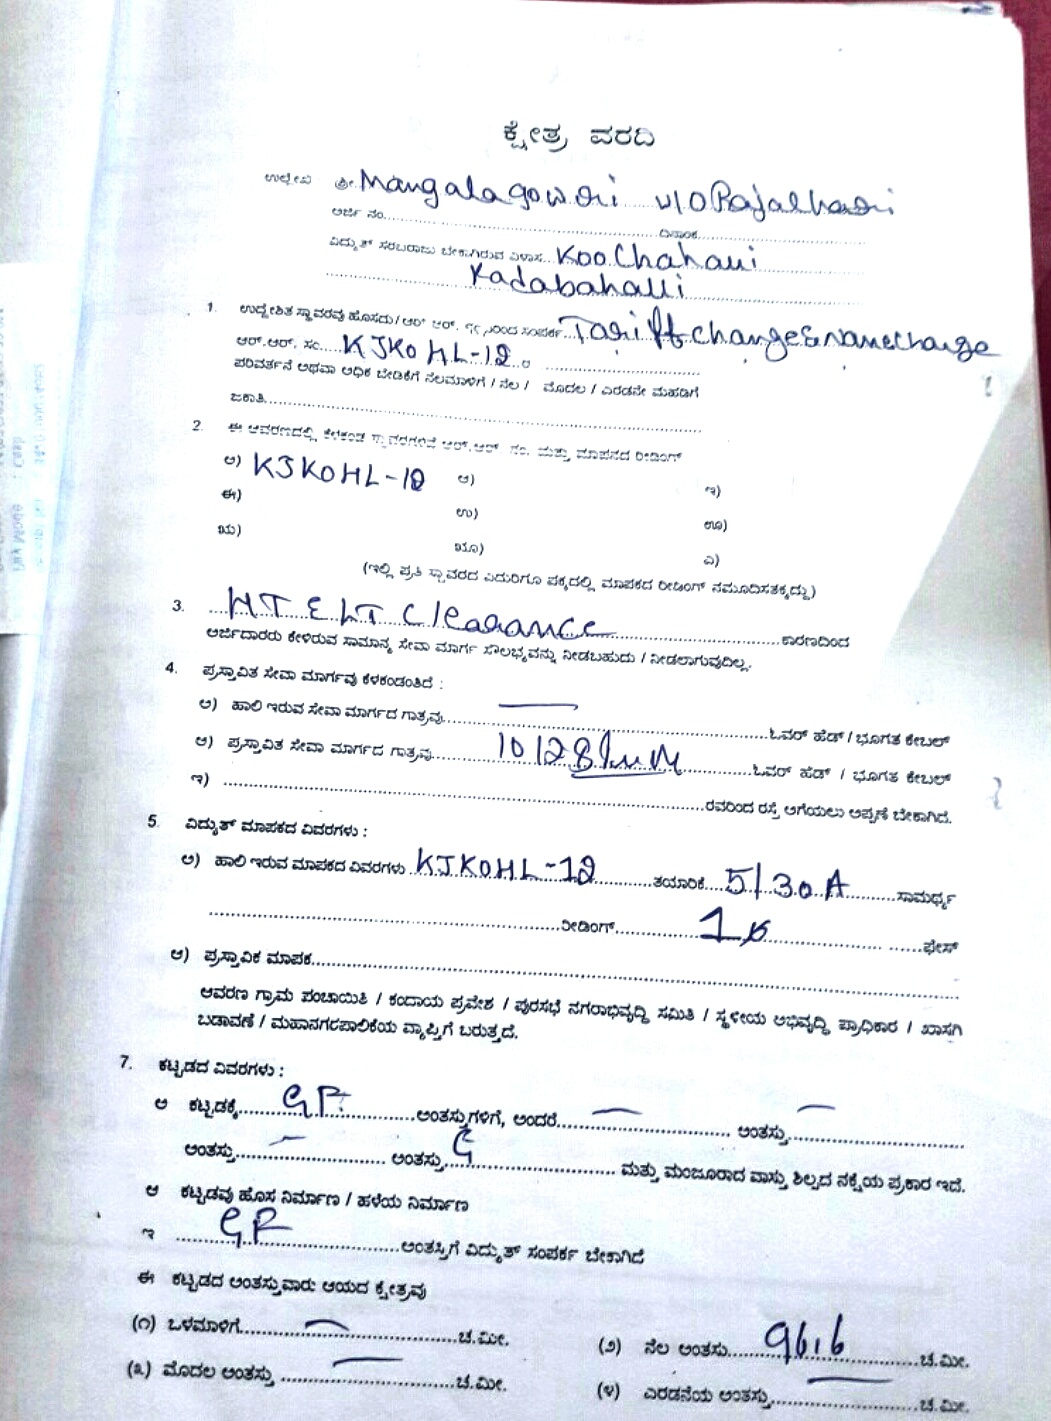 ಕ್ಷೇತ್ರ ವರದಿ
ಉಲ್ಲೇಖ ಶ್ರೀ. Mangalagowri W/O Rajalhari
ಅರ್ಜಿ ನಂ.................... ದಿನಾಂಕ....................
ವಿದ್ಯುತ್ ಸರಬರಾಜು ಬೇಕಾಗಿರುವ ವಿಳಾಸ...
Kadabahalli
1. ಉದ್ದೇಶಿತ ಸ್ಥಾವರವು ಹೊಸದು / ಆರ್ ಆರ್. ಸಂಪರ್ಕ... Tariff change & Name change
ಆರ್.ಆರ್. ಸಂ.... KJKOHL-12 ..ರ ....................
ಪರಿವರ್ತನೆ ಅಥವಾ ಅಧಿಕ ಬೇಡಿಕೆಗೆ ನೆಲಮಾಳಿಗೆ / ನೆಲ / ಮೊದಲ / ಎರಡನೇ ಮಹಡಿಗೆ
ಜಕಾತಿ....................
2. ಈ ಆವರಣದಲ್ಲಿ ಕೆಳಕಂಡ ಸ್ಥಾವರಗಳಿವೆ ಆರ್.ಆರ್. ನಂ. ಮತ್ತು ಮಾಪನದ ರೀಡಿಂಗ್
ಅ) KJKOHL-12 ಆ) ಇ)
ಈ) ಉ) ಊ)
ಋ) ೠ) ಎ)
(ಇಲ್ಲಿ ಪ್ರತಿ ಸ್ಥಾವರದ ಎದುರಿಗೂ ಪಕ್ಕದಲ್ಲಿ ಮಾಪಕದ ರೀಡಿಂಗ್ ನಮೂದಿಸತಕ್ಕದ್ದು)
3. .... HT & LT Clearance ....................ಕಾರಣದಿಂದ
ಅರ್ಜಿದಾರರು ಕೇಳಿರುವ ಸಾಮಾನ್ಯ ಸೇವಾ ಮಾರ್ಗ ಸೌಲಭ್ಯವನ್ನು ನೀಡಬಹುದು / ನೀಡಲಾಗುವುದಿಲ್ಲ.
4. ಪ್ರಸ್ತಾವಿತ ಸೇವಾ ಮಾರ್ಗವು ಕೆಳಕಂಡಂತಿದೆ :
ಅ) ಹಾಲಿ ಇರುವ ಸೇವಾ ಮಾರ್ಗದ ಗಾತ್ರವು.................... — ....................ಓವರ್ ಹೆಡ್ / ಭೂಗತ ಕೇಬಲ್
ಆ) ಪ್ರಸ್ತಾವಿತ ಸೇವಾ ಮಾರ್ಗದ ಗಾತ್ರವು.................... ....................ಓವರ್ ಹೆಡ್ / ಭೂಗತ ಕೇಬಲ್
ಇ) ....................ರವರಿಂದ ರಸ್ತೆ ಅಗೆಯಲು ಅಪ್ಪಣೆ ಬೇಕಾಗಿದೆ.
5. ವಿದ್ಯುತ್ ಮಾಪಕದ ವಿವರಗಳು :
ಅ) ಹಾಲಿ ಇರುವ ಮಾಪಕದ ವಿವರಗಳು. KJKOHL-12 ..........ತಯಾರಿಕೆ.... 5/30A ..........ಸಾಮರ್ಥ್ಯ
....................ರೀಡಿಂಗ್.................... ....................ಫೇಸ್
ಆ) ಪ್ರಸ್ತಾವಿಕ ಮಾಪಕ....................
ಆವರಣ ಗ್ರಾಮ ಪಂಚಾಯಿತಿ / ಕಂದಾಯ ಪ್ರವೇಶ / ಪುರಸಭೆ ನಗರಾಭಿವೃದ್ಧಿ ಸಮಿತಿ / ಸ್ಥಳೀಯ ಅಭಿವೃದ್ಧಿ ಪ್ರಾಧಿಕಾರ / ಖಾಸಗಿ
ಬಡಾವಣೆ / ಮಹಾನಗರಪಾಲಿಕೆಯ ವ್ಯಾಪ್ತಿಗೆ ಬರುತ್ತದೆ.
7. ಕಟ್ಟಡದ ವಿವರಗಳು :
ಅ ಕಟ್ಟಡಕ್ಕೆ.......... GF ..........ಅಂತಸ್ತುಗಳಿಗೆ, ಅಂದರೆ.......... — .......... ಅಂತಸ್ತು.......... — ..........
ಅಂತಸ್ತು.......... — .......... ಅಂತಸ್ತು.......... G .......... ಮತ್ತು ಮಂಜೂರಾದ ವಾಸ್ತು ಶಿಲ್ಪದ ನಕ್ಷೆಯ ಪ್ರಕಾರ ಇದೆ.
ಆ ಕಟ್ಟಡವು ಹೊಸ ನಿರ್ಮಾಣ / ಹಳೆಯ ನಿರ್ಮಾಣ
ಇ .......... GF ..........ಅಂತಸ್ತಿಗೆ ವಿದ್ಯುತ್ ಸಂಪರ್ಕ ಬೇಕಾಗಿದೆ
ಈ ಕಟ್ಟಡದ ಅಂತಸ್ತುವಾರು ಆಯದ ಕ್ಷೇತ್ರವು
(೧) ಒಳಮಾಳಿಗೆ.......... — ..........ಚ.ಮೀ. (೨) ನೆಲ ಅಂತಸು.......... 96.6 ..........ಚ.ಮೀ.
(೩) ಮೊದಲ ಅಂತಸ್ತು .......... — ..........ಚ.ಮೀ. (೪) ಎರಡನೆಯ ಅಂತಸ್ತು.......... — ..........ಚ.ಮೀ.